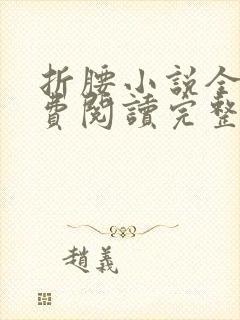 折腰小說全
費閱讀完整
趙義